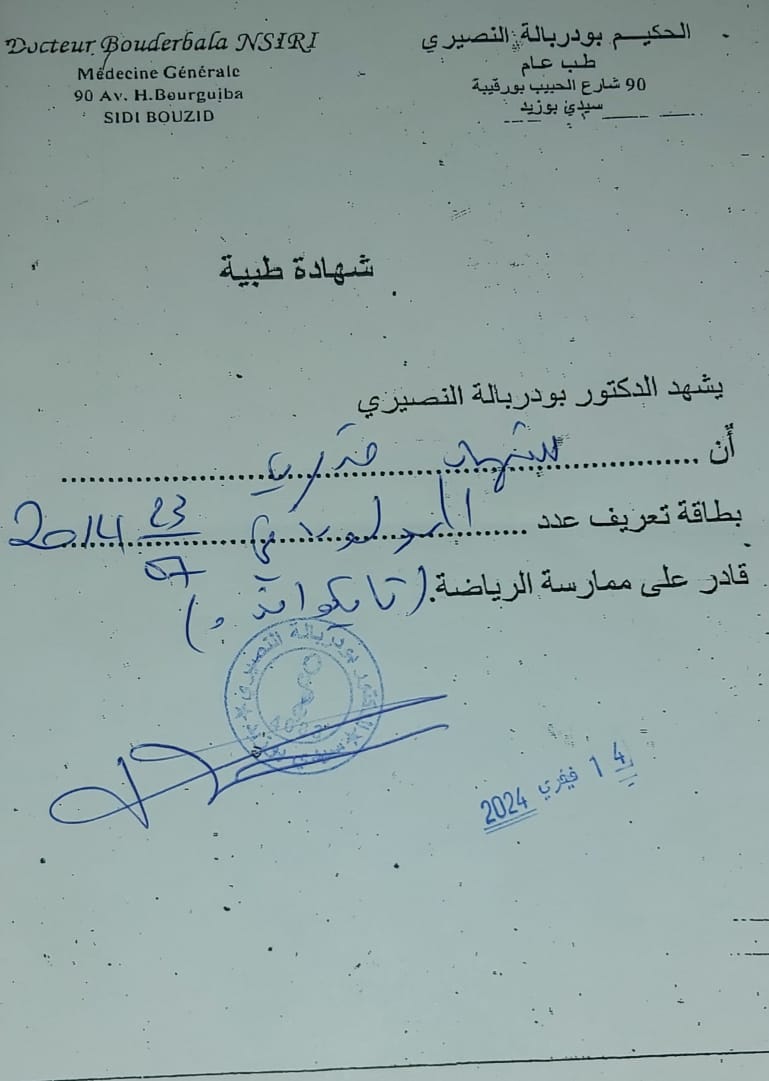 Docteur Bouderbala NSIRI
Médecine Générale
90 Av. H.Bourguiba
SIDI BOUZID
الحكيم بودربالة النصيري
طب عام
90 شارع الحبيب بورقيبة
سيدي بوزيد
شهادة طبية
يشهد الدكتور بودربالة النصيري
أن
بطاقة تعريف عدد المولود في 23 07 2014
قادر على ممارسة الرياضة. (تايكواندو)
الدكتور بودربالة النصيري
سيدي بوزيد
14 فيفري 2024